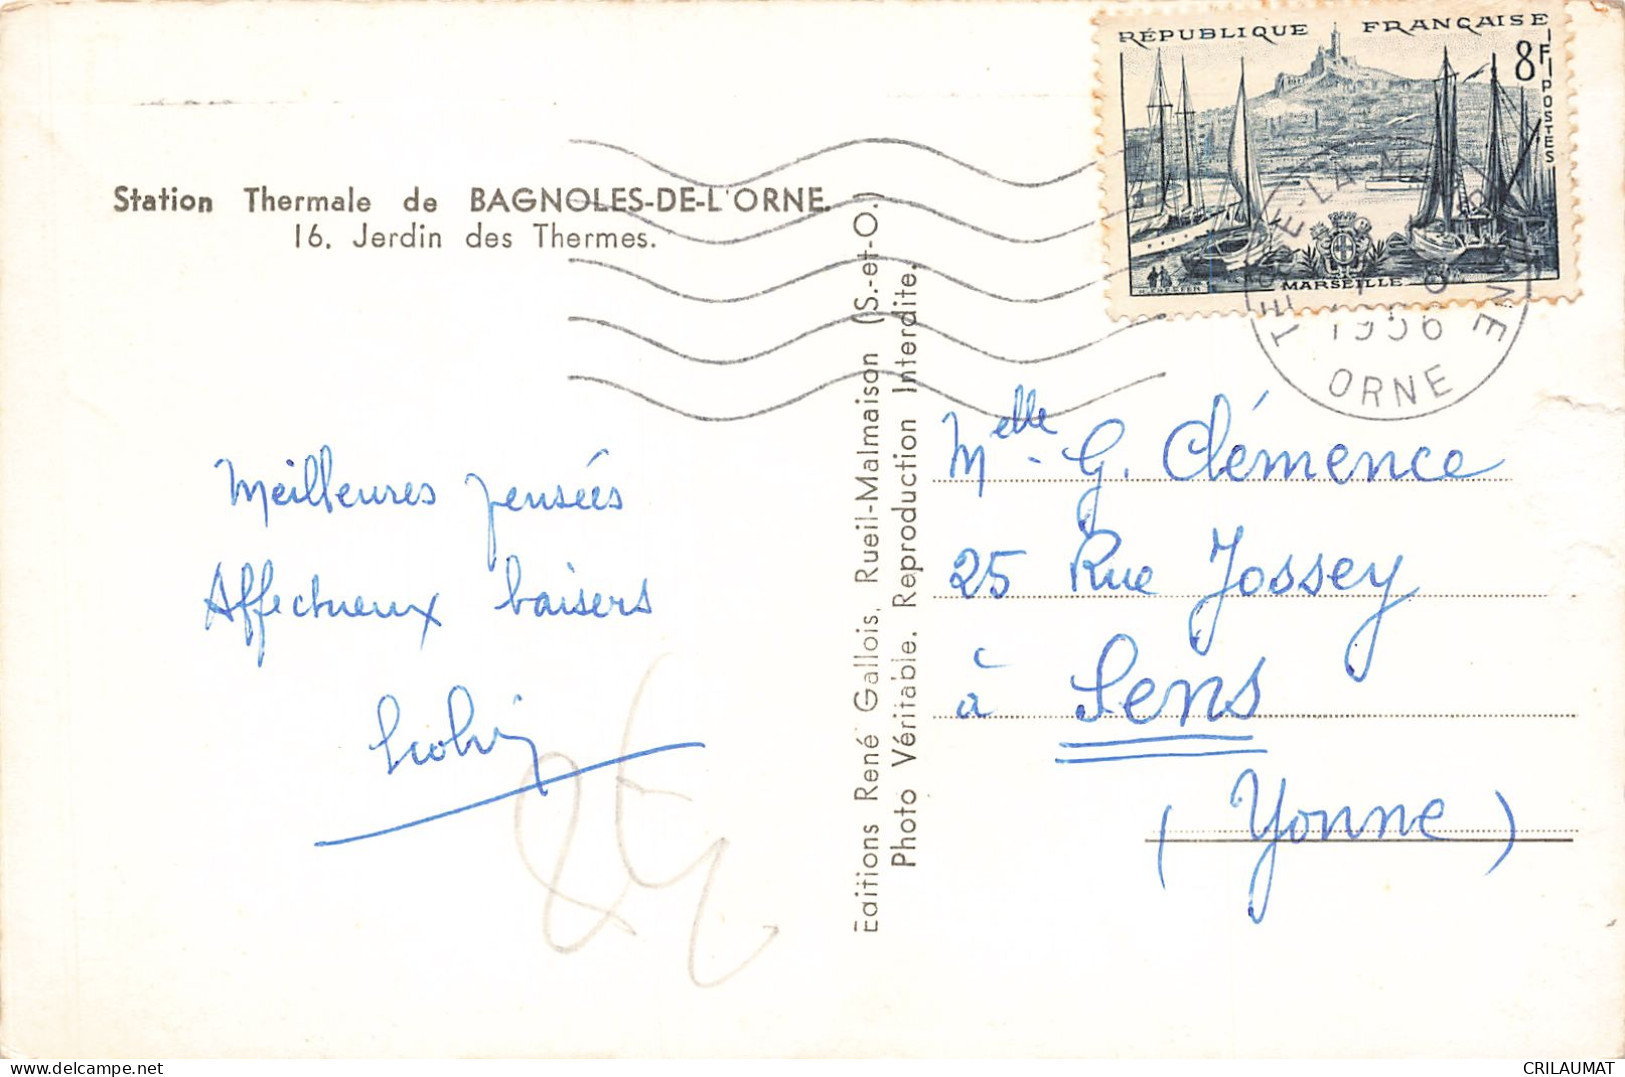 Station Thermale de BAGNOLES-DE-L'ORNE.
16. Jerdin des Thermes.
Meilleures pensées
Affectueux baisers
Editions René Gallois, Rueil-Malmaison (S.-et-O.)
Photo Véritable. Reproduction Interdite.
RÉPUBLIQUE FRANÇAISE
8F
POSTES
MARSEILLE
1956
ORNE
Melle - G. Clémence
25 Rue Jossey
à Sens
( Yonne )
CRILAUMAT